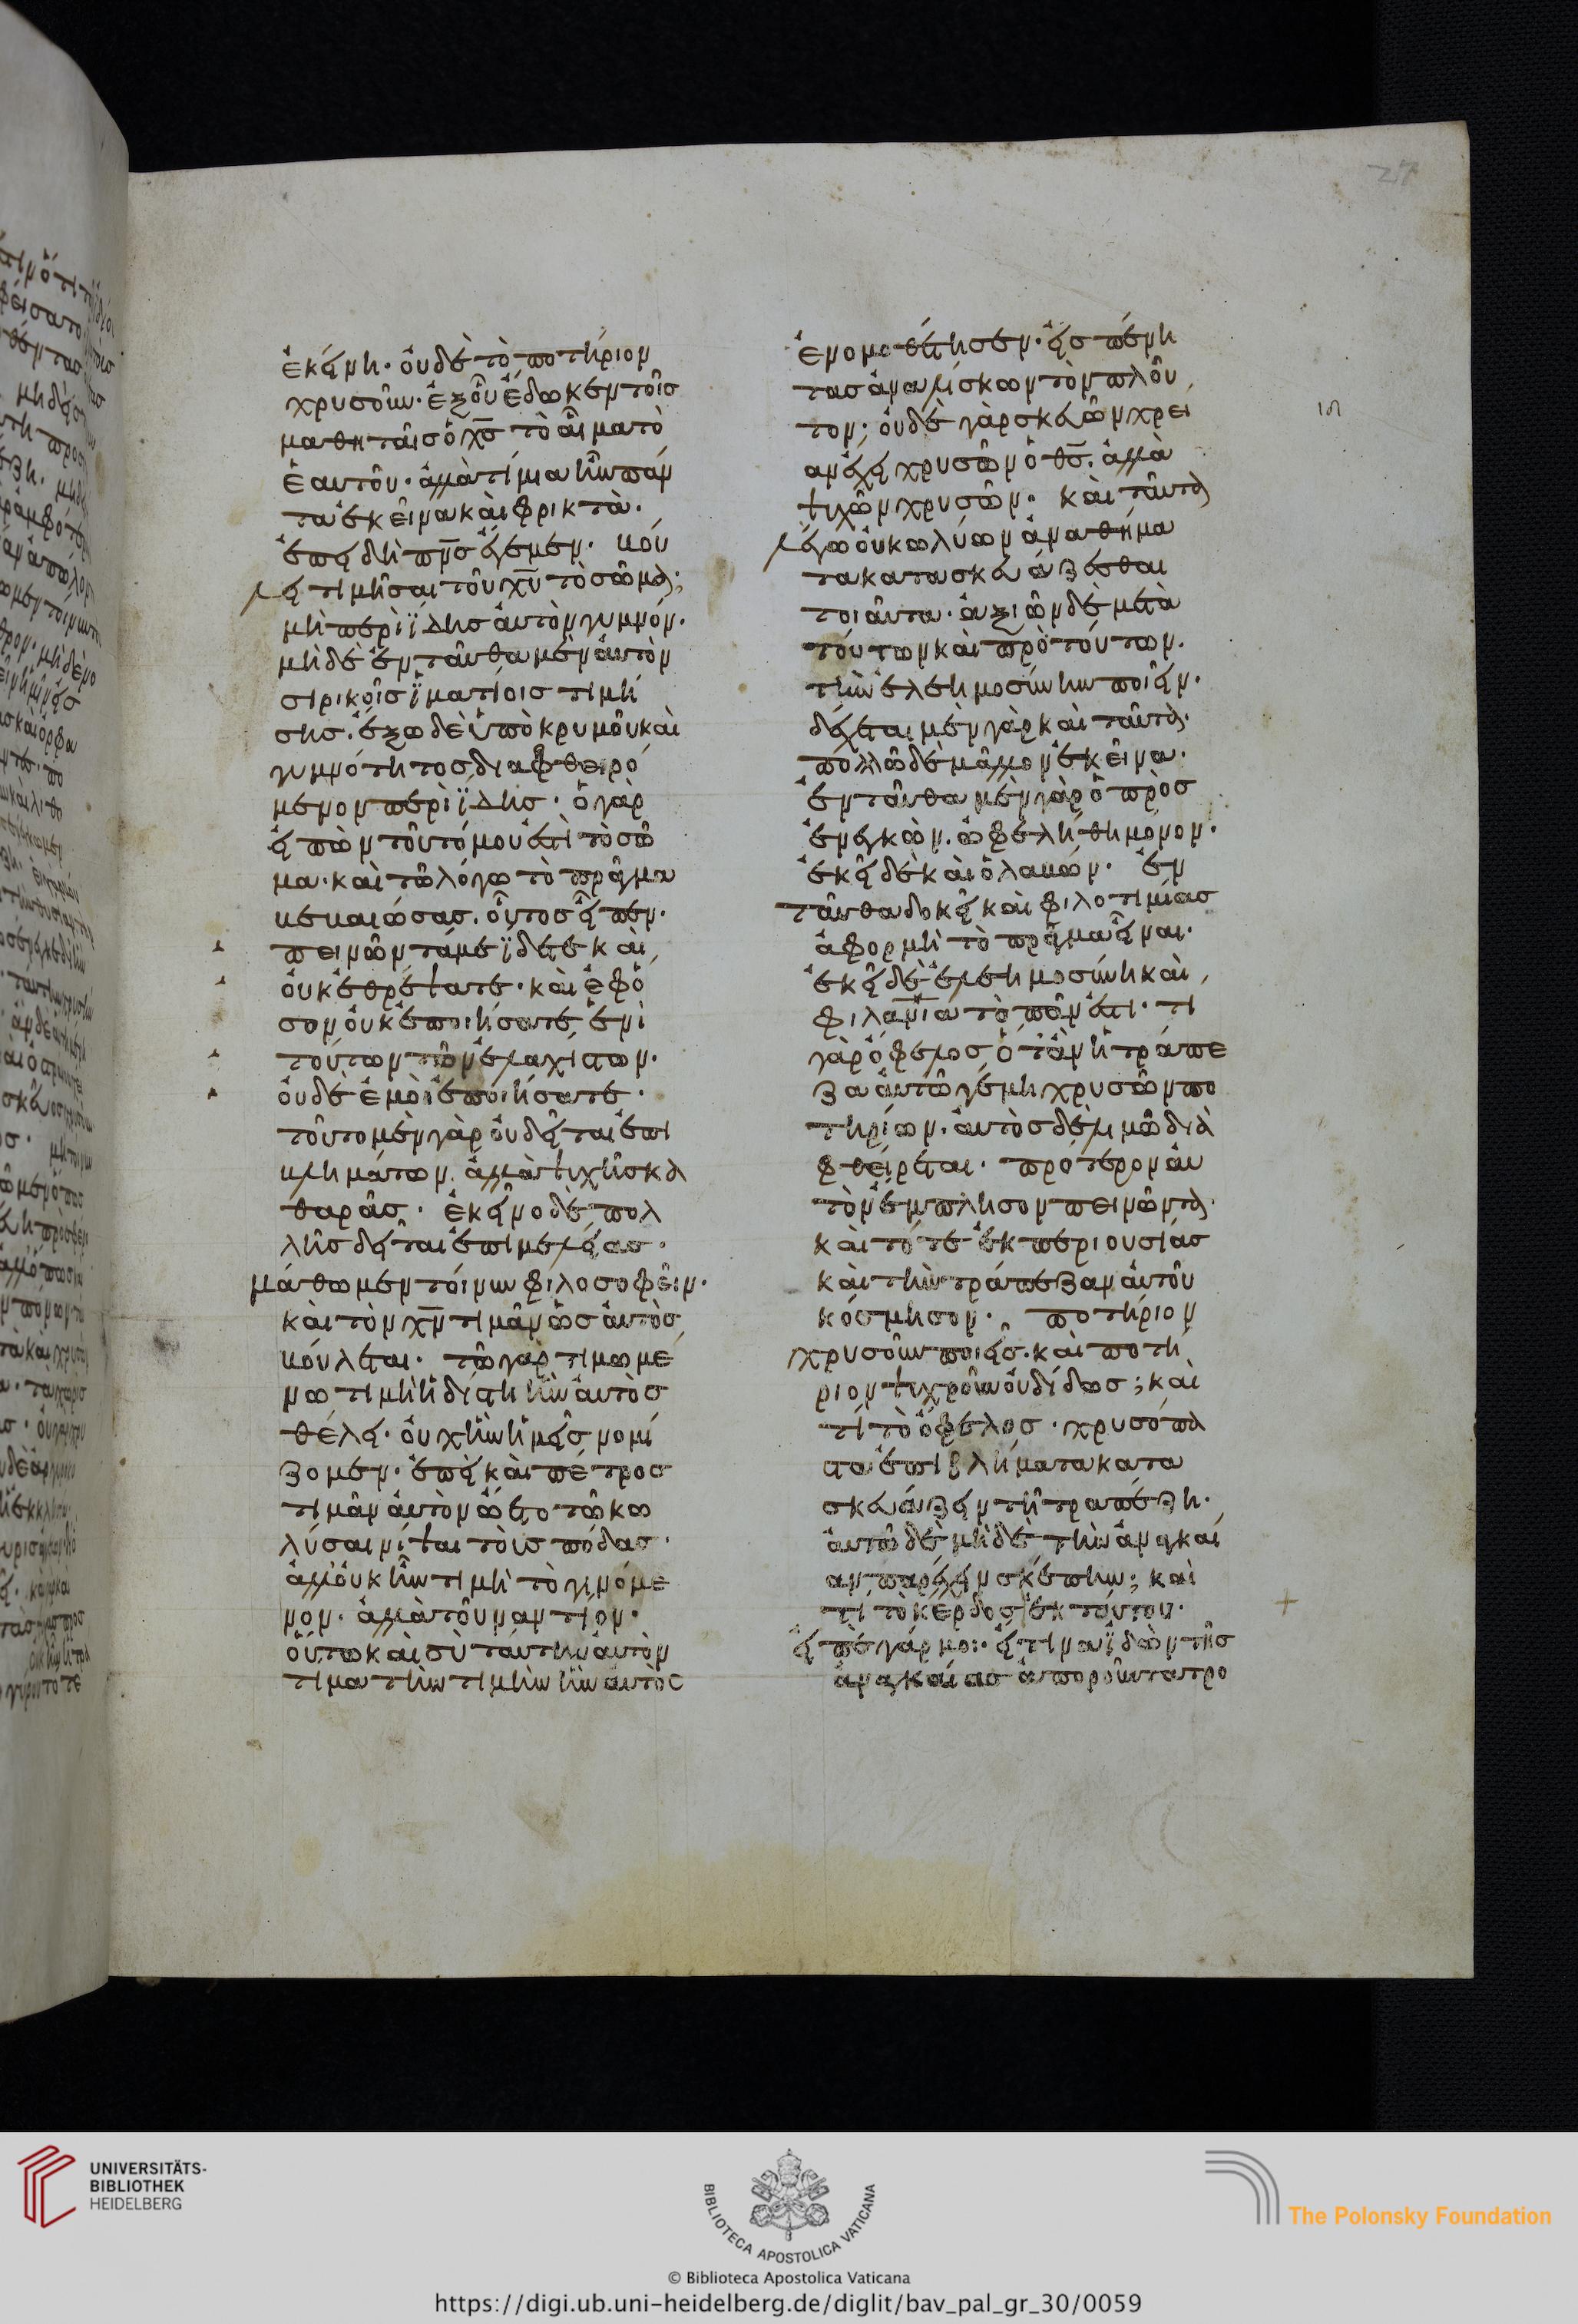 ἐκείνη· οὐδὲ τὸ ποτήριον
χρυσοῦν· ἐξ οὗ ἔδωκεν τοῖς
μαθηταῖς ὁ χς̅ τὸ αἷμα τὸ
ἑαυτοῦ· ἀλλὰ τίμια ἦν πάν
τα ἐκεῖνα καὶ φρικτά·
ἐπειδὴ πν̅ς ἔγεμεν· βού
λει τιμῆσαι τοῦ χυ̅ τὸ σῶμα;
μὴ περιΐδης αὐτὸν γυμνόν·
μὴ δὲ ἐνταῦθα μὲν αὐτὸν
σιρικοῖς ἱματίοις τιμή
σης· ἔξω δὲ ὑπὸ κρυμοῦ καὶ
γυμνότητος διαφθειρό
μενον περιΐδης· ὁ γὰρ
εἰπὼν τοῦτό μου ἐστὶ τὸ σῶ
μα· καὶ τῶ λόγω τὸ πρᾶγμα
βεβαιώσας· οὗτος εἶπεν·
πεινῶντά με ΐδετε καὶ
οὐκ ἐθρέψατε· καὶ ἐφ' ὅ
σον οὐκ ἐποιήσατε ἑνὶ
τούτων τῶν ἐλαχίστων·
οὐδὲ ἐμοὶ ἐποιήσατε·
τοῦτο μὲν γὰρ οὐ δεῖται ἐπι
βλημάτων· ἀλλὰ ψυχῆς κα
θαρᾶς· ἐκεῖνο δὲ πολ
λῆς δεῖται ἐπιμελείας·
μάθωμεν τοίνυν φιλοσοφεῖν·
καὶ τὸν χν̅ τιμᾶν ὡς αὐτὸς
βούλεται· τῶ γὰρ τιμωμέ
νω τιμὴ ἡδίστη ἣν αὐτὸς
θέλει· οὐχ ἣν ἡμεῖς νομί
ζομεν· ἐπεὶ καὶ πέτρος
τιμᾶν αὐτὸν ὤετο τῶ κω
λύσαι νίψαι τοὺς πόδας·
ἀλλ' οὐκ ἦν τιμὴ τὸ γινόμε
νον· ἀλλὰ τοὐναντίον·
οὕτω καὶ σὺ ταύτην αὐτὸν
τίμα τὴν τιμὴν ἣν αὐτὸς
27
ἐνομοθέτησεν· εἰς πένη
τας ἀναλίσκων τὸν πλοῦ
τον· οὐδὲ γὰρ σκευῶν χρεί
αν ἔχει χρυσῶν ὁ θς̅· ἀλλὰ
ψυχῶν χρυσῶν· καὶ ταῦτα
λέγω οὐ κωλύων ἀναθήμα
τα κατασκευάζεσθαι
τοιαῦτα· ἀξιῶν δὲ μετὰ
τούτων καὶ πρὸ τούτων·
τὴν ἐλεημοσύνην ποιεῖν·
δέχεται μὲν γὰρ καὶ ταῦτα·
πολλῶ δὲ μᾶλλον ἐκεῖνα·
ἐνταῦθα μὲν γὰρ ὁ προσ
ενεγκὼν· ὠφελήθη μόνον·
ἐκεῖ δὲ καὶ ὁ λαβών· ἐν
ταῦθα δοκεῖ καὶ φιλοτιμίας
ἀφορμὴ τὸ πρᾶγμα εἶναι·
ἐκεῖ δὲ ἐλεημοσύνη καὶ
φιλαν̅ία τὸ πᾶν ἐστι· τί
γὰρ ὄφελος ὅταν ἡ τράπε
ζα αὐτῶ γέμη χρυσῶν πο
τηρίων· αὐτὸς δὲ λιμῶ δια
φθείρεται· πρότερον αὐ
τὸν ἔμπλησον πεινῶντα·
καὶ τότε ἐκ περιουσίας
καὶ τὴν τράπεζαν αὐτοῦ
κόσμησον· ποτήριον
χρυσοῦν ποιεῖς· καὶ ποτή
ριον ψυχροῦ οὐ δίδως; καὶ
τί τὸ ὄφελος· χρυσόπα
στα ἐπιβλήματα κατα
σκευάζειν τῆ τραπέζη·
αὐτῶ δὲ μὴ δὲ τὴν ἀναγκαί
αν παρέχειν σκέπην; καὶ
τί τὸ κέρδος ἐκ τούτου·
εἰπὲ γάρ μοι· εἴ τινα ἰδὼν τῆς
ἀναγκαίας ἀποροῦντα τρο
UNIVERSITÄTS-
BIBLIOTHEK
HEIDELBERG
BIBLIOTECA APOSTOLICA VATICANA
The Polonsky Foundation
© Biblioteca Apostolica Vaticana
https://digi.ub.uni-heidelberg.de/diglit/bav_pal_gr_30/0059